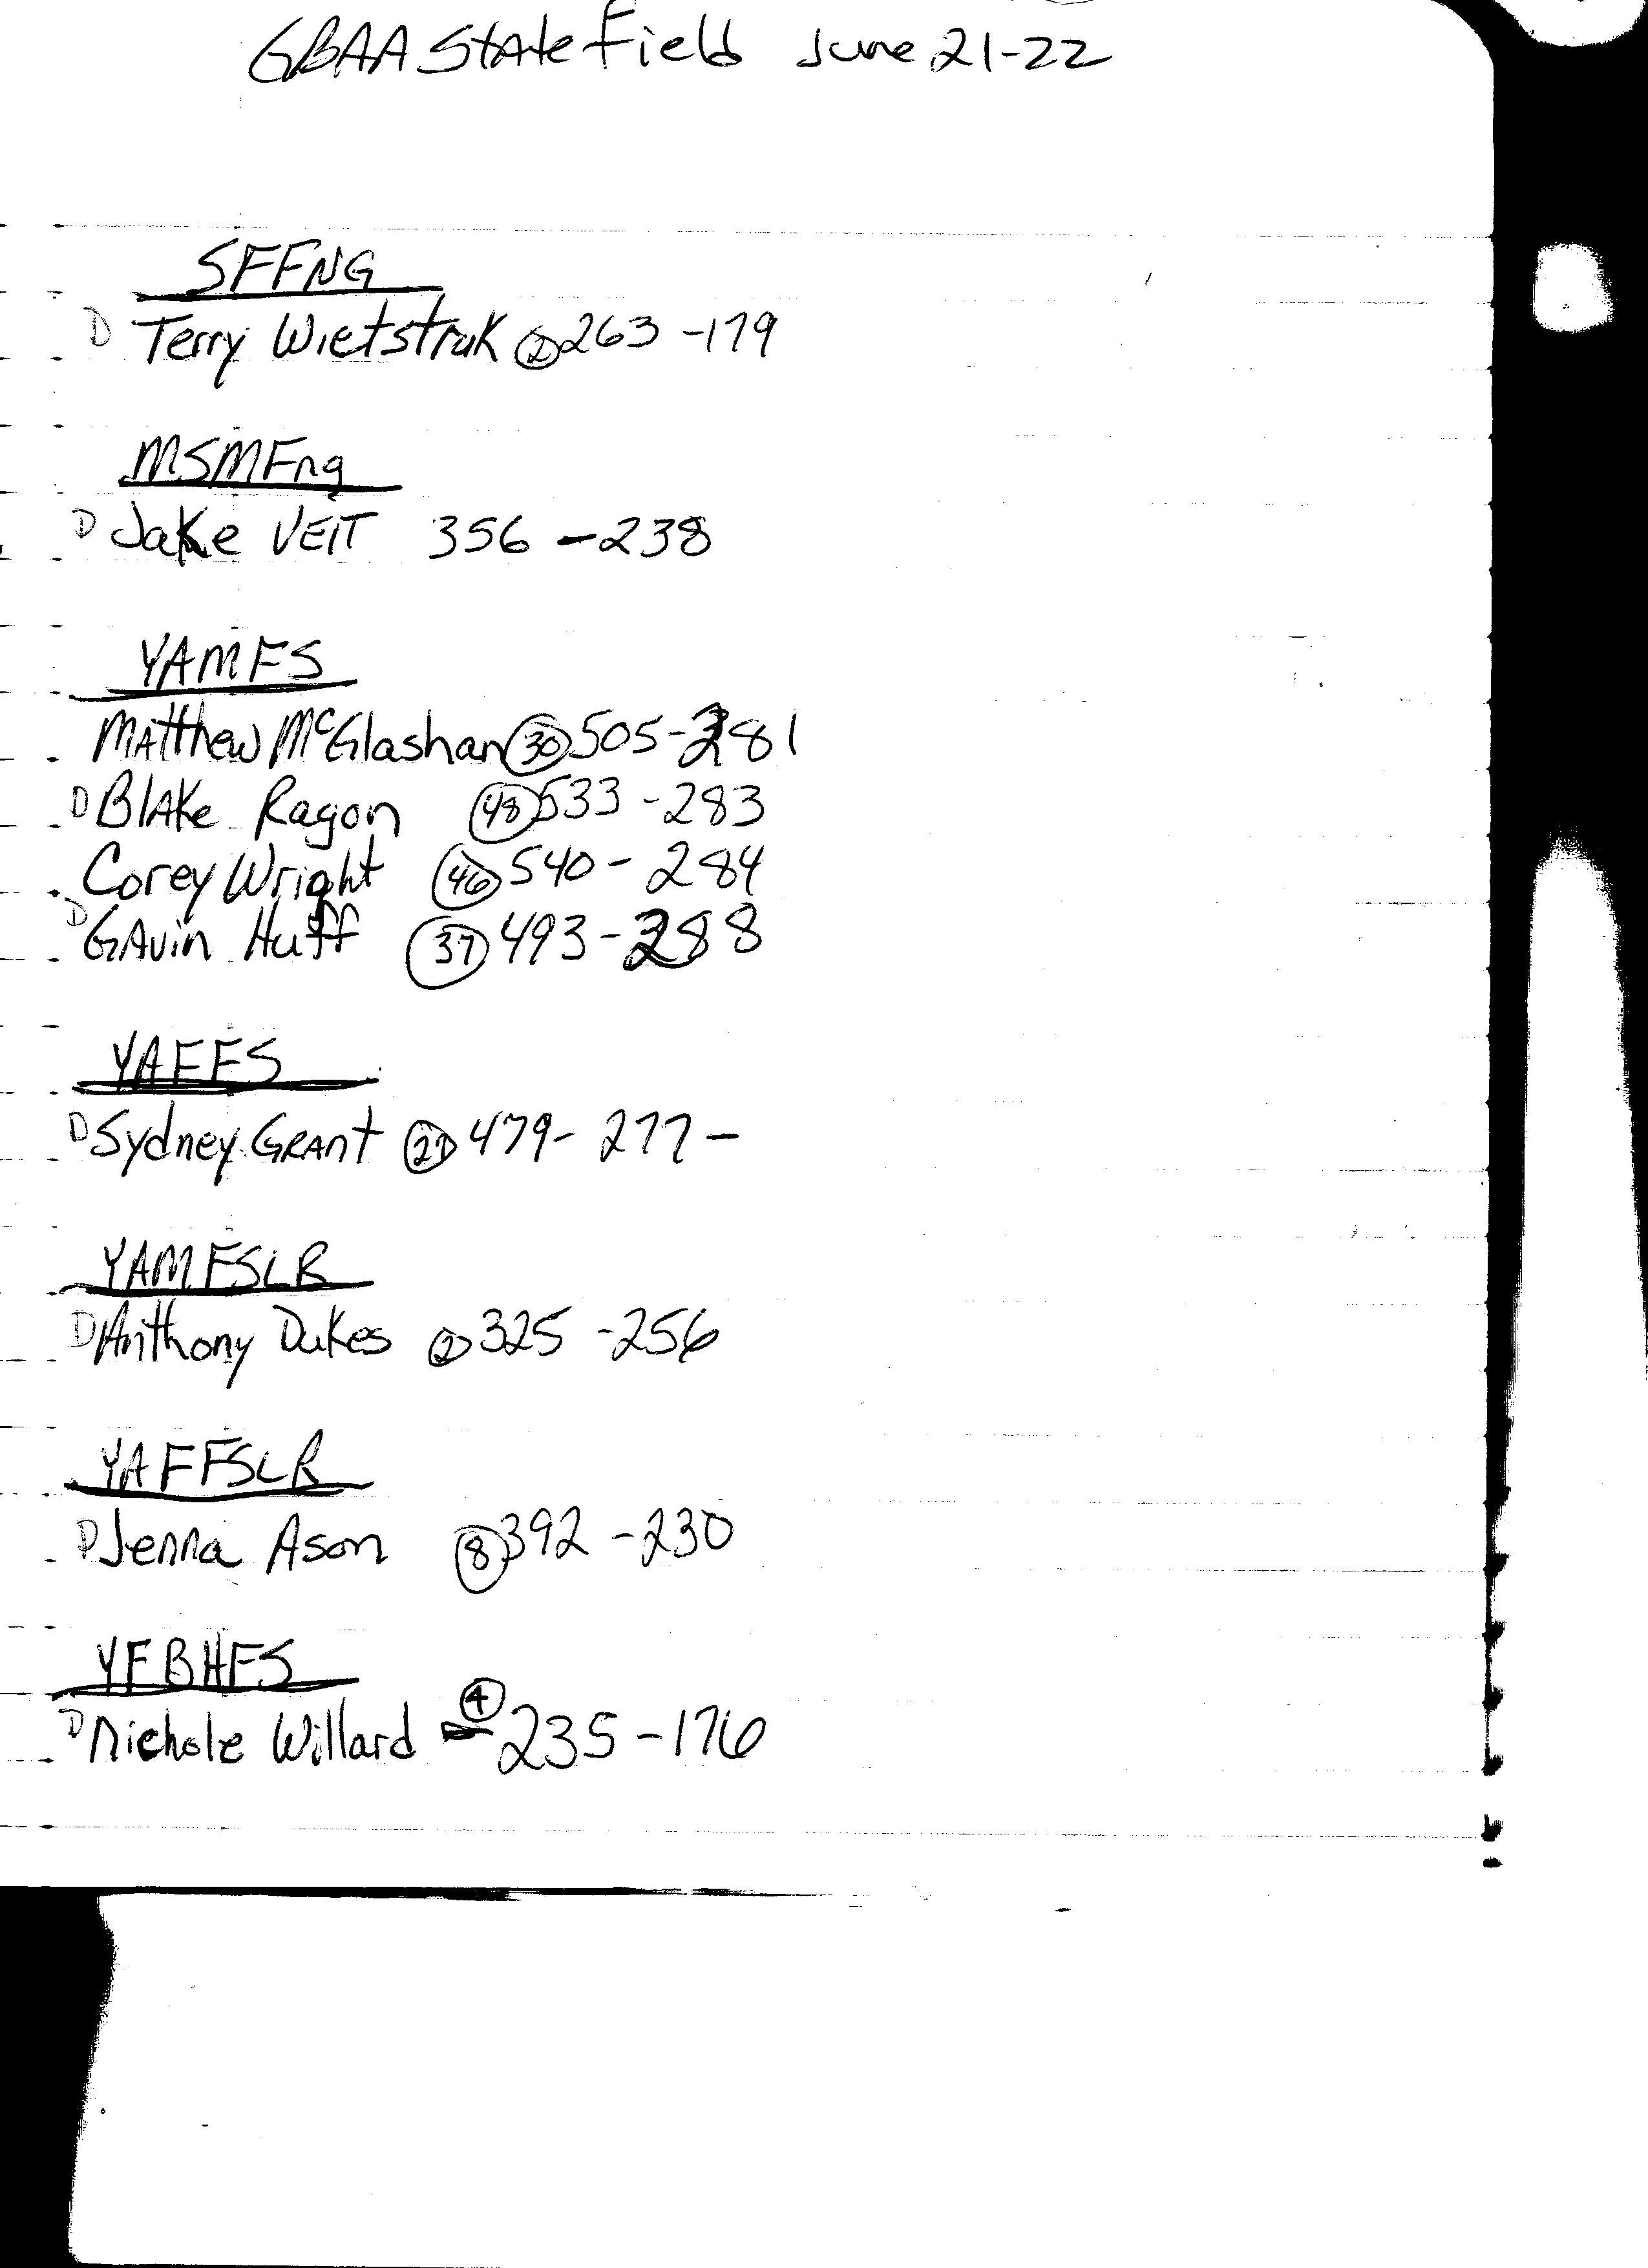 GBAA State Field June 21-22
SFFNG
D Terry Wietstruk ② 263 -179
MSMFng
D Jake VEIT 356 -238
YAMFS
Matthew McGlashan ㉚ 505-281
D Blake Ragon ㊽ 533 -283
Corey Wright ㊻ 540 - 284
D Gavin Huff ㊲ 493-288
YAFFS
D Sydney Grant 479- 277 -
YAMFSLR
D Anthony Dukes ② 325 -256
YAFFSLR
D Jenna Ason ⑧ 392 -230
YFBHFS
D Nichole Willard ④ 235 -176